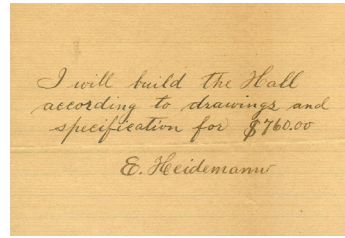 I will build the Hall
according to drawings and
specification for $760.00
E. Heidemann